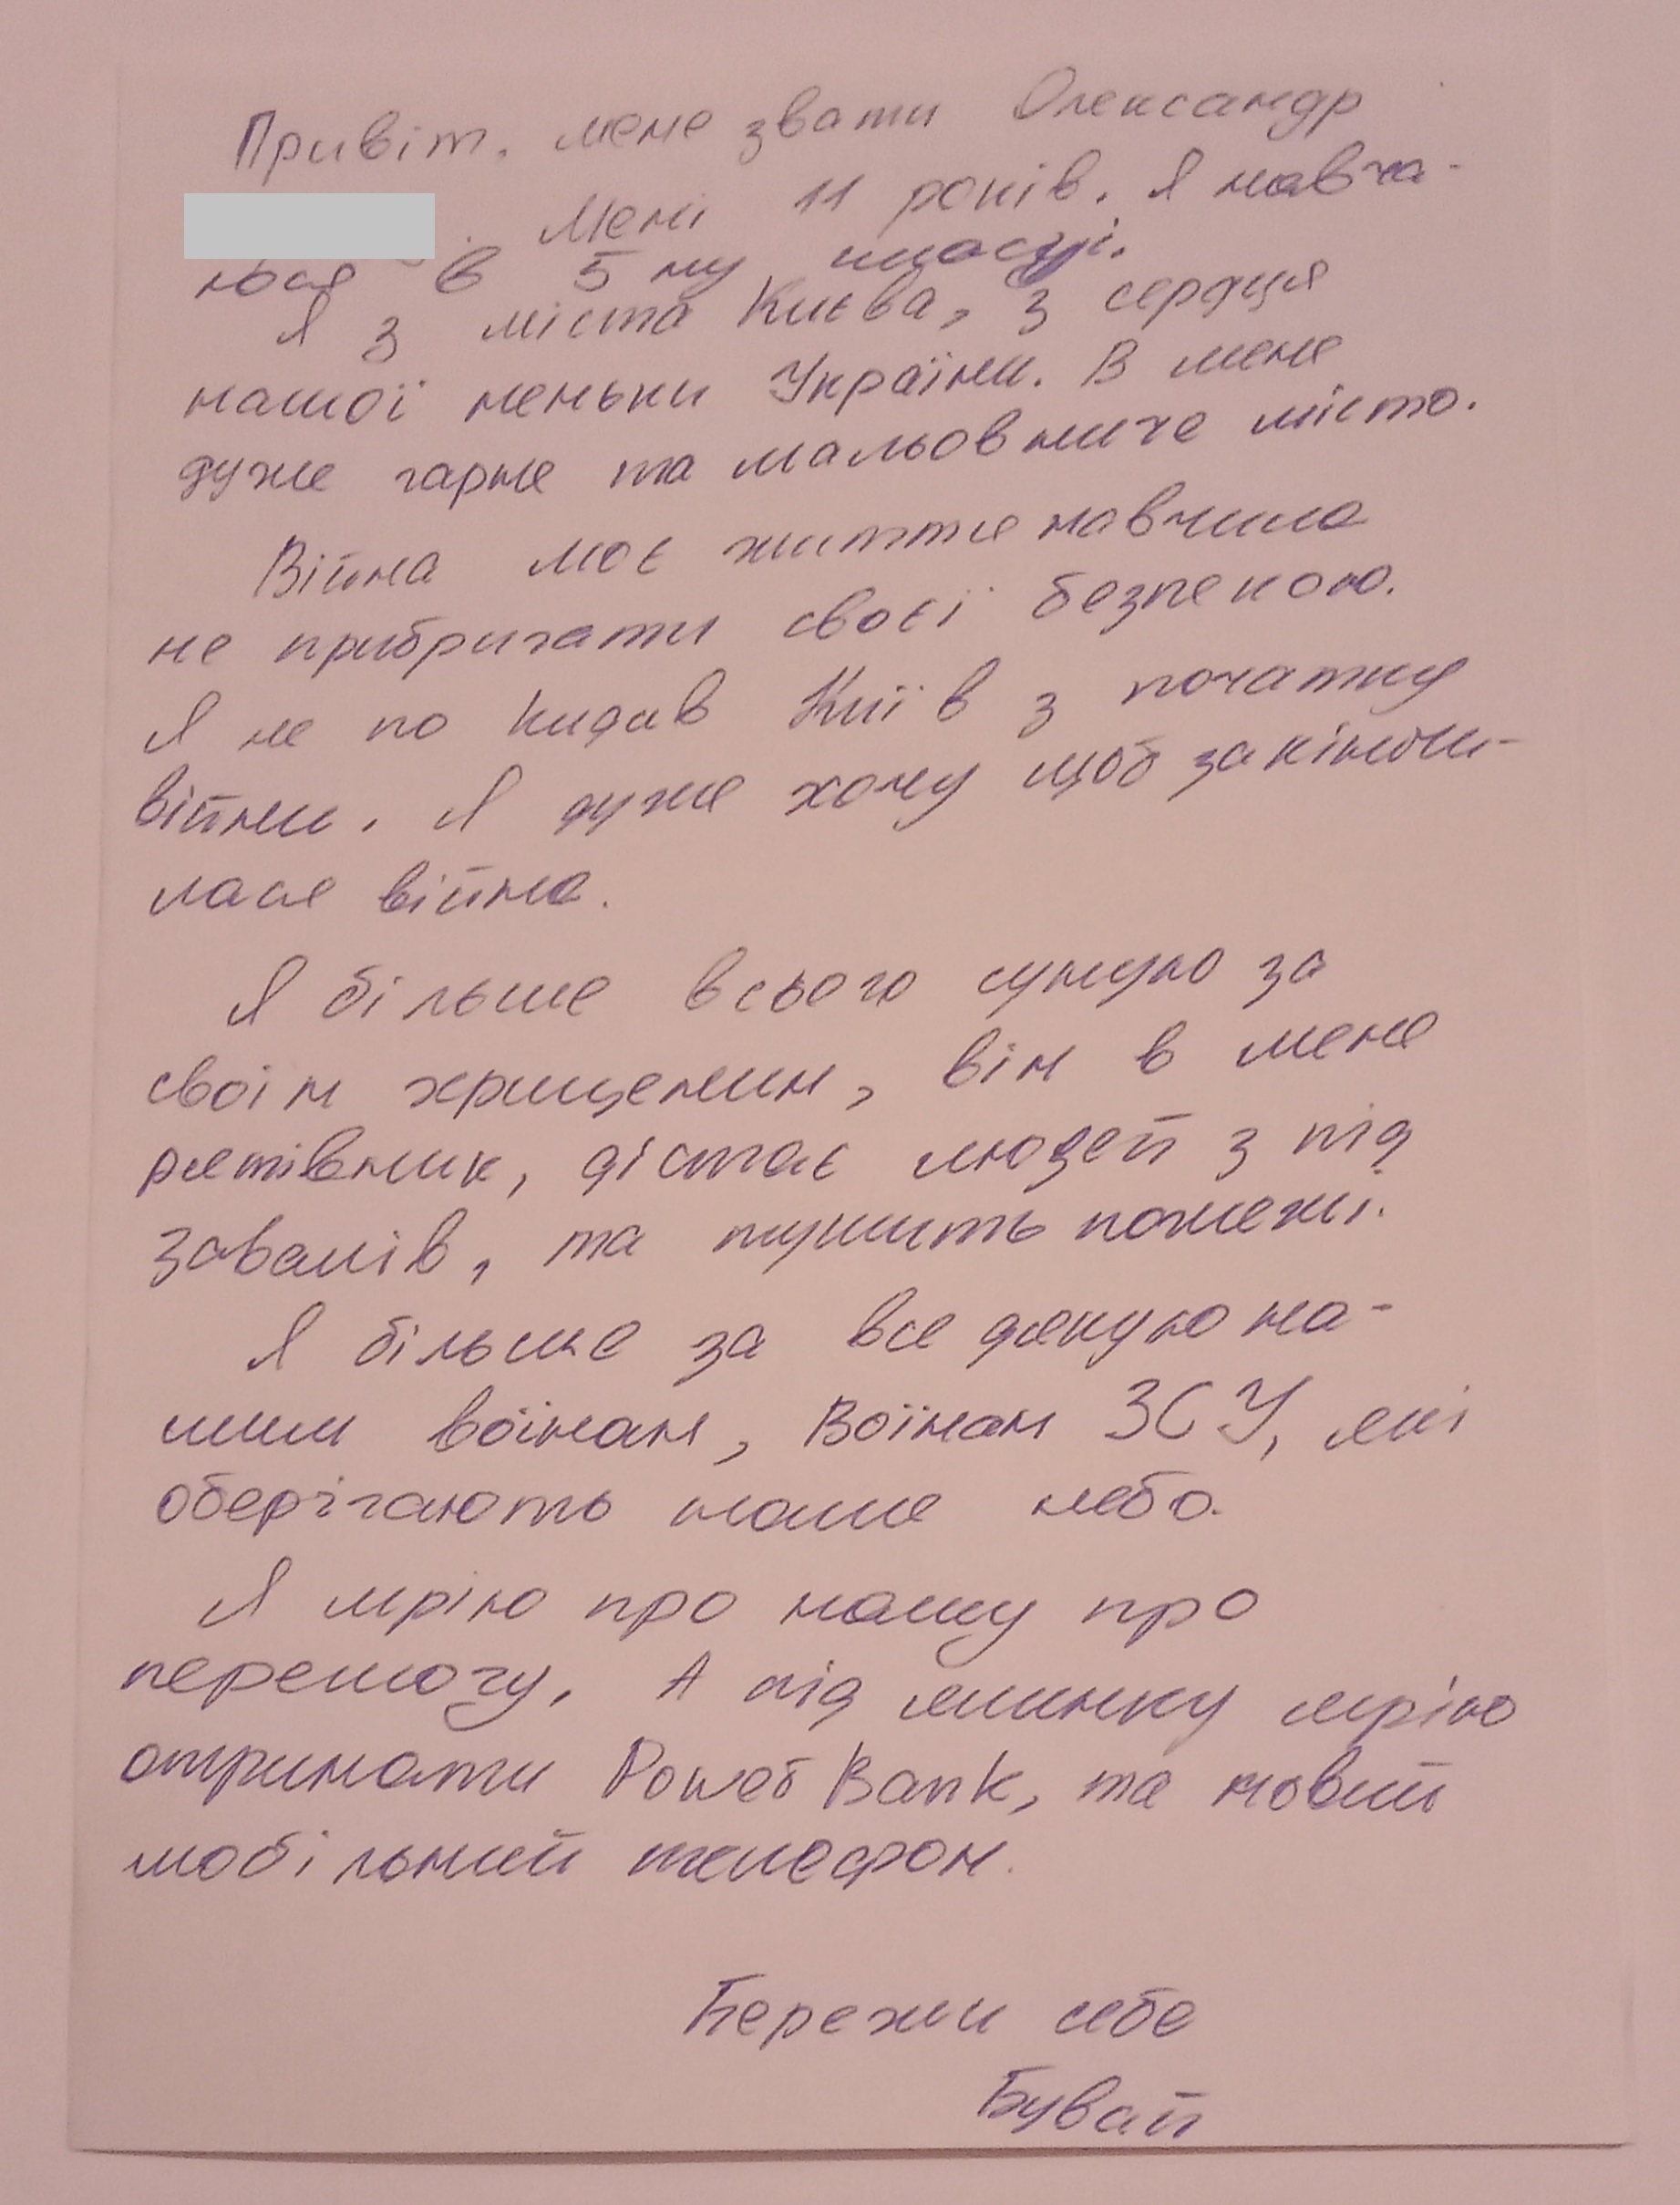 Привіт. мене звати Олександр
. Мені 11 років. Я навча-
юся в 5 му класці.
Я з міста Києва, з сердця
нашої неньки України. В мене
дуже гарне та мальовниче місто.
Війна моє життя навчила
не прибригати своєї безпекою.
Я не по кидав Київ з початку
війни. Я дуже хочу щоб закінчи-
лася війна.
Я більше всього сумую за
своїм хрищеним, він в мене
рятівник, дістає людей з під
завалів, та тушить пожежі.
Я більше за все дякую на-
шим воїнам, Воїнам ЗСУ, які
оберігають наше небо.
Я мрію про нашу про
перемогу, А під ялинку мрію
отримати Power Bank, та новий
мобільний телефон.
Бережи себе
Бувай